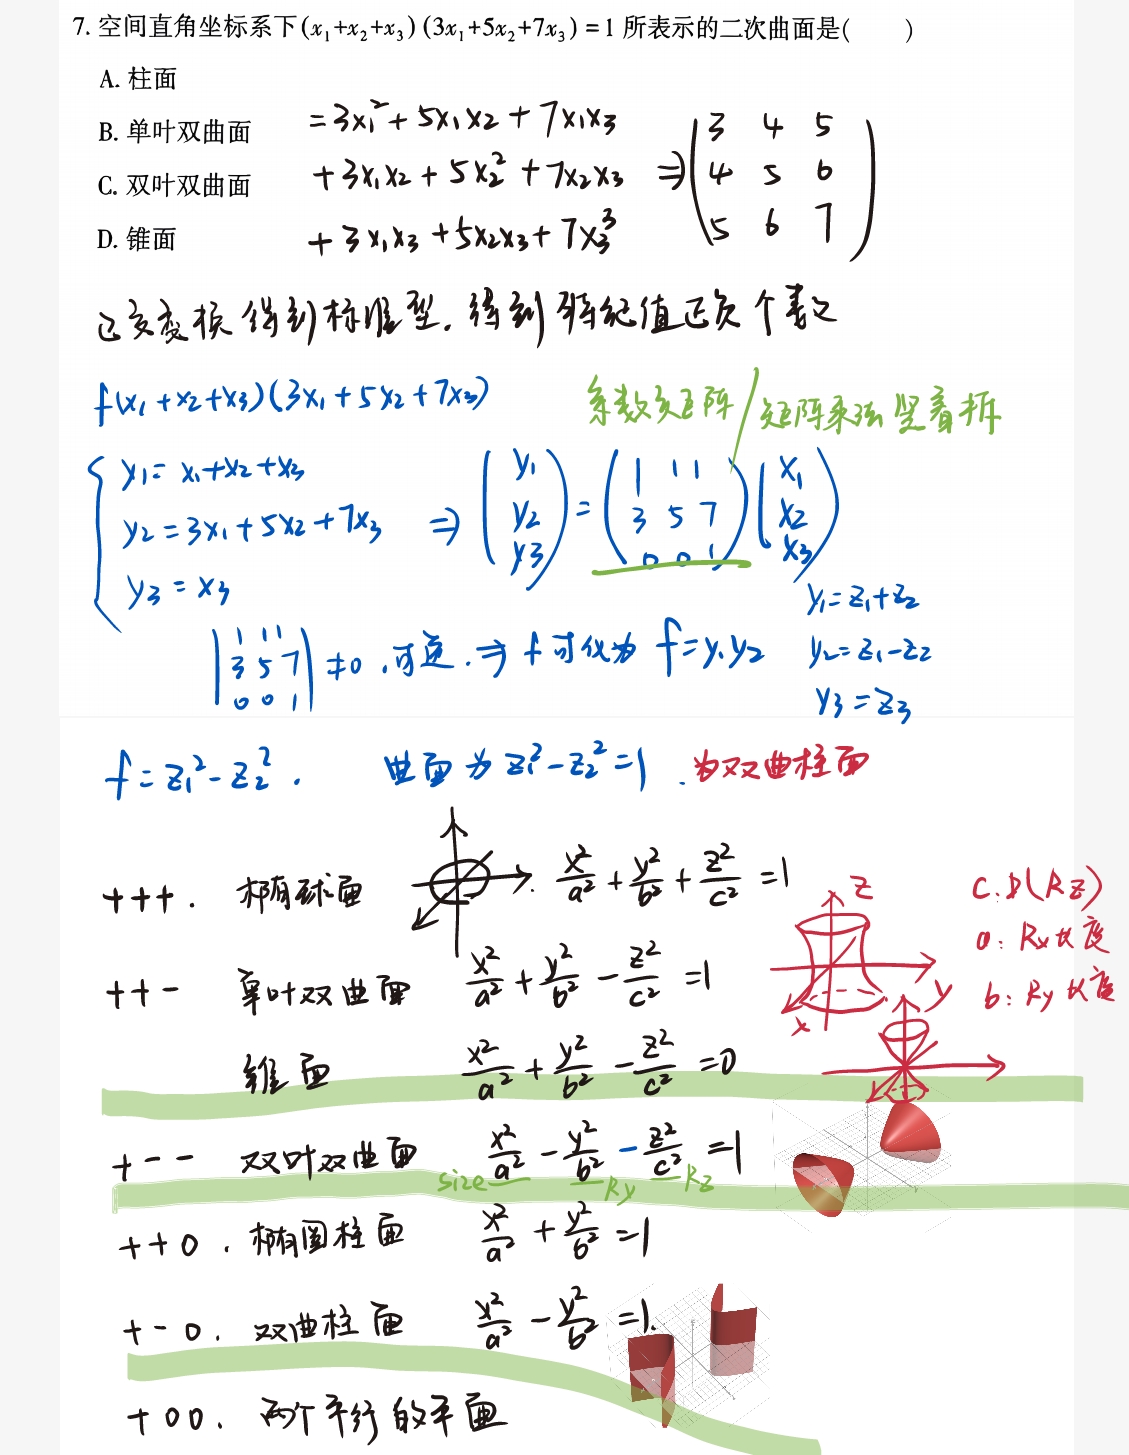 7. 空间直角坐标系下(x₁+x₂+x₃)(3x₁+5x₂+7x₃)=1 所表示的二次曲面是(　　)
A. 柱面
B. 单叶双曲面
C. 双叶双曲面
D. 锥面
=3x₁²+5x₁x₂+7x₁x₃
+3x₁x₂+5x₂²+7x₂x₃
+3x₁x₃+5x₂x₃+7x₃³
⇒ (3 4 5
4 5 6
5 6 7)
正交变换得到标准型. 得到特征值正负个数
f(x₁+x₂+x₃)(3x₁+5x₂+7x₃)
系数矩阵/矩阵乘法竖着拆
{ y₁= x₁+x₂+x₃
y₂=3x₁+5x₂+7x₃
y₃=x₃
⇒ (y₁ y₂ y₃) = (1 1 1
3 5 7
0 0 1) (x₁ x₂ x₃)
y₁=z₁+z₂
y₂=z₁-z₂
y₃=z₃
|1 1 1
3 5 7
0 0 1| ≠0 ,可逆. ⇒ f可化为 f=y₁y₂
f=z₁²-z₂². 曲面为 z₁²-z₂²=1 .为双曲柱面
+++. 椭球面 x²/a²+y²/b²+z²/c²=1
z
y
x
C: D(Rz)
a: Rx长度
b: Ry长度
++- 单叶双曲面 x²/a²+y²/b²-z²/c²=1
锥面 x²/a²+y²/b²-z²/c²=0
+-- 双叶双曲面 x²/a²-y²/b²-z²/c²=1
size Ry Rz
++0. 椭圆柱面 x²/a²+y²/b²=1
+-0. 双曲柱面 x²/a²-y²/b²=1.
+00. 两个平行的平面